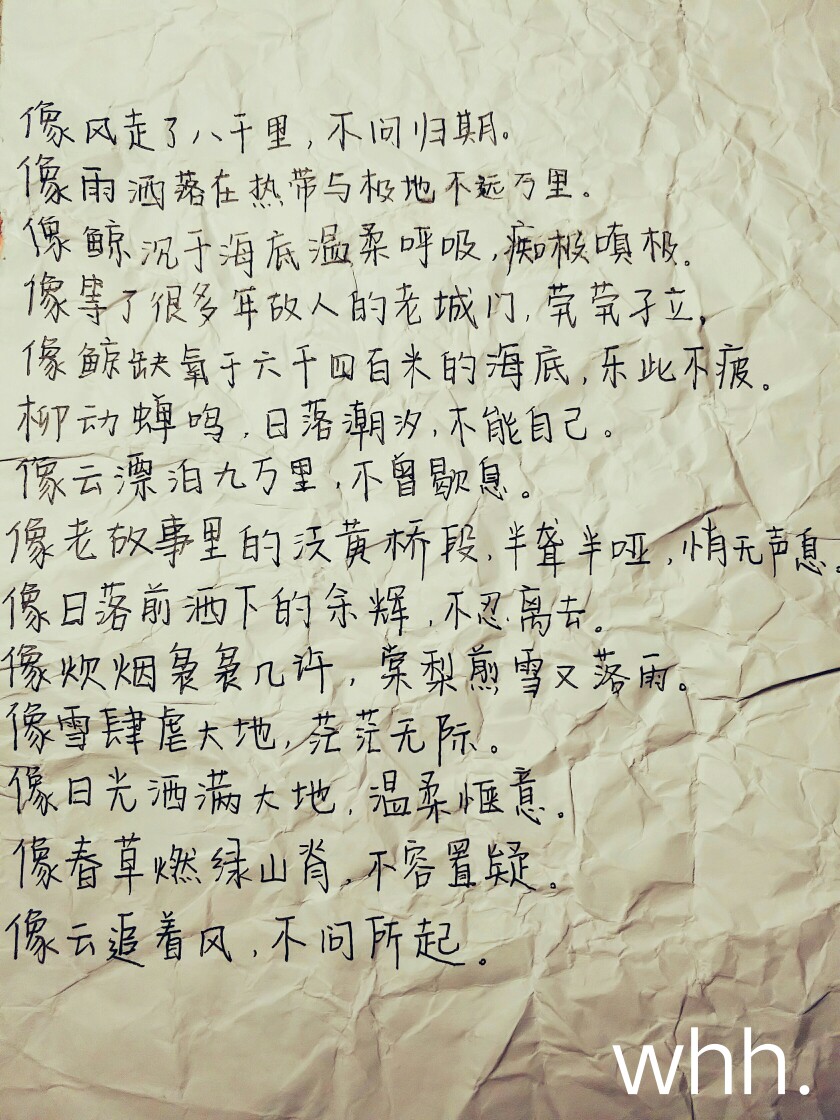 像风走了八千里，不问归期。
像雨洒落在热带与极地不远万里。
像鲸沉于海底温柔呼吸，痴极嗔极。
像等了很多年故人的老城门，茕茕孑立，
像鲸缺氧于六千四百米的海底，乐此不疲。
柳动蝉鸣，日落潮汐，不能自己。
像云漂泊九万里，不曾歇息。
像老故事里的泛黄桥段，半聋半哑，悄无声息。
像日落前洒下的余辉，不忍离去。
像炊烟袅袅几许，棠梨煎雪又落雨。
像雪肆虐大地，茫茫无际。
像日光洒满大地，温柔惬意。
像春草燃绿山脊，不容置疑。
像云追着风，不问所起。
whh.